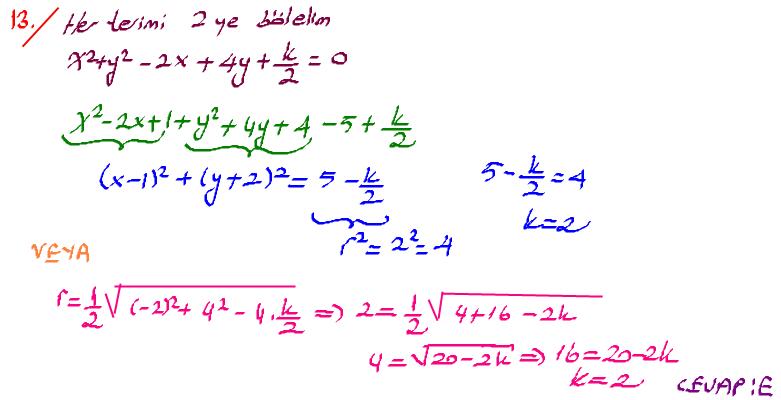 13./ Her terimi 2 ye bölelim
x²+y² - 2x + 4y + k/2 = 0
x² - 2x + 1 + y² + 4y + 4 - 5 + k/2
(x-1)² + (y+2)² = 5 - k/2
r² = 2² = 4
5 - k/2 = 4
k = 2
VEYA
r = 1/2 √((-2)² + 4² - 4.k/2) => 2 = 1/2 √(4+16 - 2k)
4 = √(20-2k) => 16 = 20-2k
k = 2
CEVAP:E